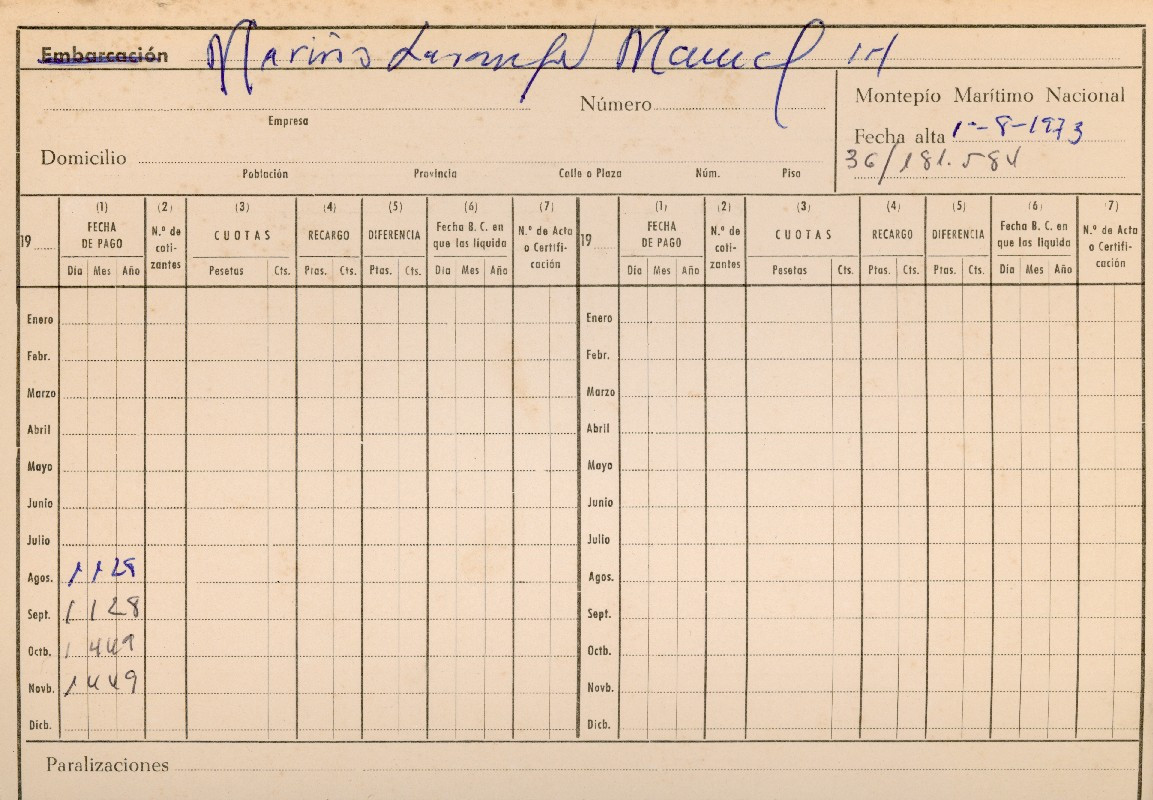 Embarcación Mariño Manuel
Número
Empresa
Domicilio
Población Provincia Calle o Plaza Núm. Piso
Montepío Marítimo Nacional
Fecha alta 1-8-1973
36/181.584
19 (1) (2) (3) (4) (5) (6) (7) 19 (1) (2) (3) (4) (5) (6) (7)
FECHA DE PAGO N.º de coti-zantes CUOTAS RECARGO DIFERENCIA Fecha B. C. en que las liquida N.º de Acta o Certifi-cación FECHA DE PAGO N.º de coti-zantes CUOTAS RECARGO DIFERENCIA Fecha B. C. en que las liquida N.º de Acta o Certifi-cación
Día Mes Año Pesetas Cts. Ptas. Cts. Ptas. Cts. Día Mes Año Día Mes Año Pesetas Cts. Ptas. Cts. Ptas. Cts. Día Mes Año
Enero Enero
Febr. Febr.
Marzo Marzo
Abril Abril
Mayo Mayo
Junio Junio
Julio Julio
Agos. 1128 Agos.
Sept. 1128 Sept.
Octb. 1449 Octb.
Novb. 1449 Novb.
Dicb. Dicb.
Paralizaciones